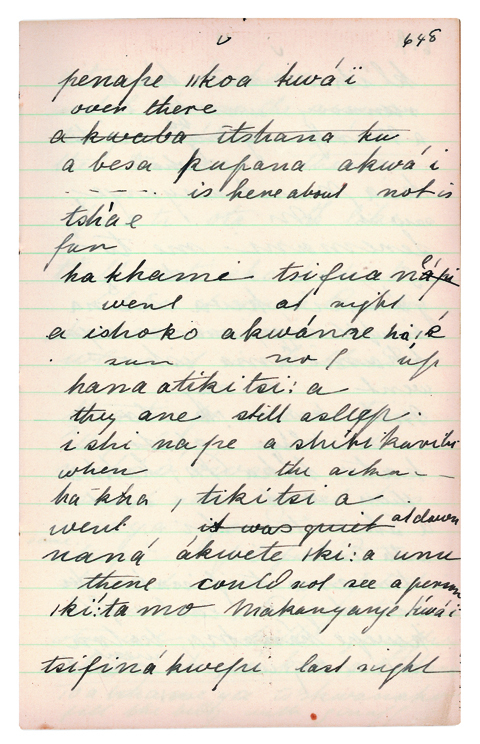 648
penape ǁkoa kwá'ï
over there
a kwaba itshana ku
a besa kupana akwá'i
- - - - - is here about not is
tshá e
far
ha khame tsifua
went at night
a ishoko akwánze
sun not up
hana atikitsi: a
they are still asleep.
ishi nape a
when the
ha kha, tikitsi a
went it was quiet at dawn
naná ákwete ǀki:a unu
there could not see a person
ǀki:ta mo Makanyanje kwá'i
tsifiná kwepi last night